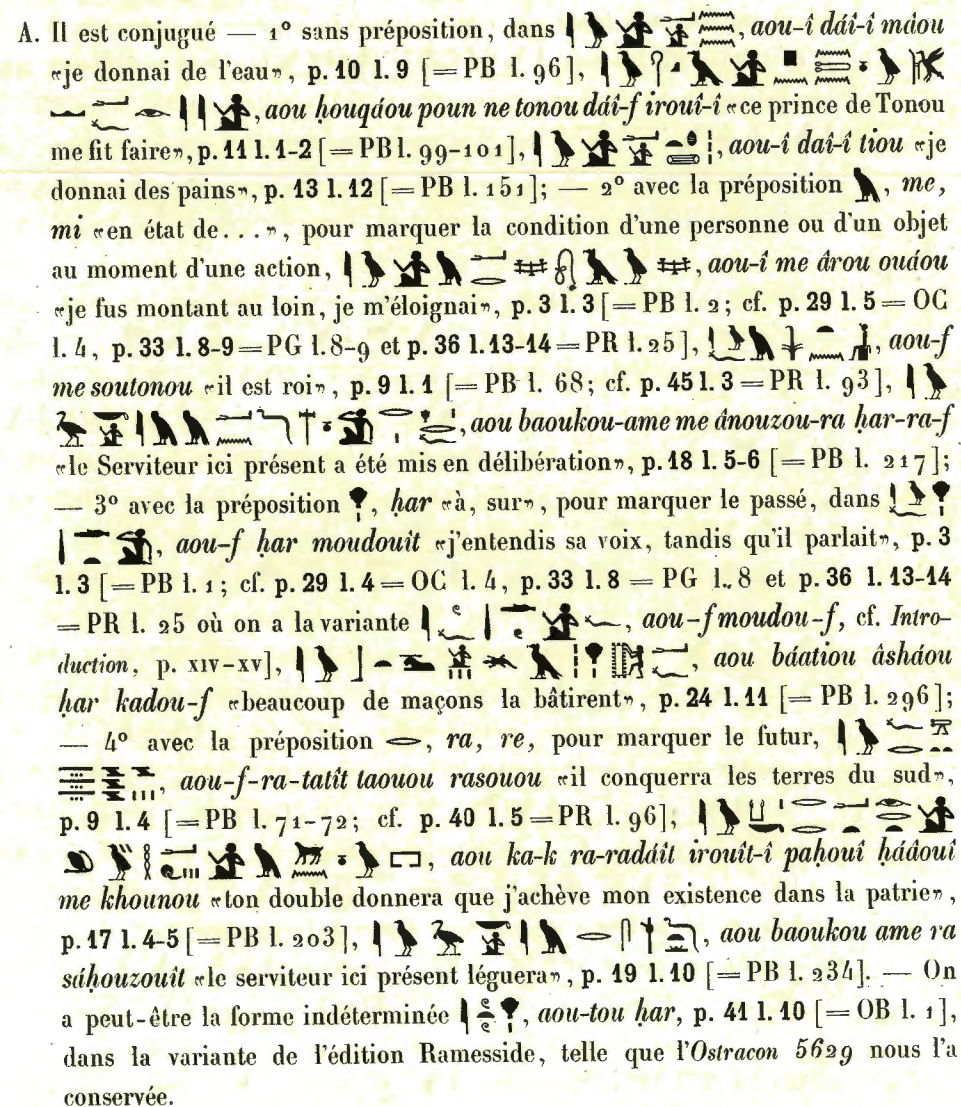 A. Il est conjugué — 1° sans préposition, dans , aou-î dáî-î máou
«je donnai de l'eau», p. 10 l. 9 [=PB l. 96],
, aou ḥouqáou poun ne tonou dáî-f irouî-î «ce prince de Tonou
me fit faire», p. 11 l. 1-2 [=PB l. 99-101], , aou-î daî-î tiou «je
donnai des pains», p. 13 l. 12 [=PB l. 151]; — 2° avec la préposition , me,
mi «en état de...», pour marquer la condition d'une personne ou d'un objet
au moment d'une action, , aou-î me ârou ouáou
«je fus montant au loin, je m'éloignai», p. 3 l. 3 [=PB l. 2; cf. p. 29 l. 5=OC
l. 4, p. 33 l. 8-9=PG l. 8-9 et p. 36 l. 13-14=PR l. 25], , aou-f
me soutonou «il est roi», p. 9 l. 1 [=PB l. 68; cf. p. 45 l. 3=PR l. 93],
, aou baoukou-ame me ânouzou-ra ḥar-ra-f
«le Serviteur ici présent a été mis en délibération», p. 18 l. 5-6 [=PB l. 217];
— 3° avec la préposition , ḥar «à, sur», pour marquer le passé, dans
, aou-f ḥar moudouît «j'entendis sa voix, tandis qu'il parlait», p. 3
l. 3 [=PB l. 1; cf. p. 29 l. 4=OC l. 4, p. 33 l. 8 = PG l. 8 et p. 36 l. 13-14
=PR l. 25 où on a la variante , aou-f moudou-f, cf. Intro-
duction, p. XIV-XV], , aou báatiou âsháou
ḥar kadou-f «beaucoup de maçons la bâtirent», p. 24 l. 11 [=PB l. 296];
— 4° avec la préposition , ra, re, pour marquer le futur,
, aou-f-ra-tatît taouou rasouou «il conquerra les terres du sud»,
p. 9 l. 4 [=PB l. 71-72; cf. p. 40 l. 5=PR l. 96],
, aou ka-k ra-radáît irouît-î paḥouî ḥáâouî
me khounou «ton double donnera que j'achève mon existence dans la patrie»,
p. 17 l. 4-5 [=PB l. 203], , aou baoukou ame ra
sáḥouzouît «le serviteur ici présent léguera», p. 19 l. 10 [=PB l. 234]. — On
a peut-être la forme indéterminée , aou-tou ḥar, p. 41 l. 10 [=OB l. 1],
dans la variante de l'édition Ramesside, telle que l'Ostracon 5629 nous l'a
conservée.